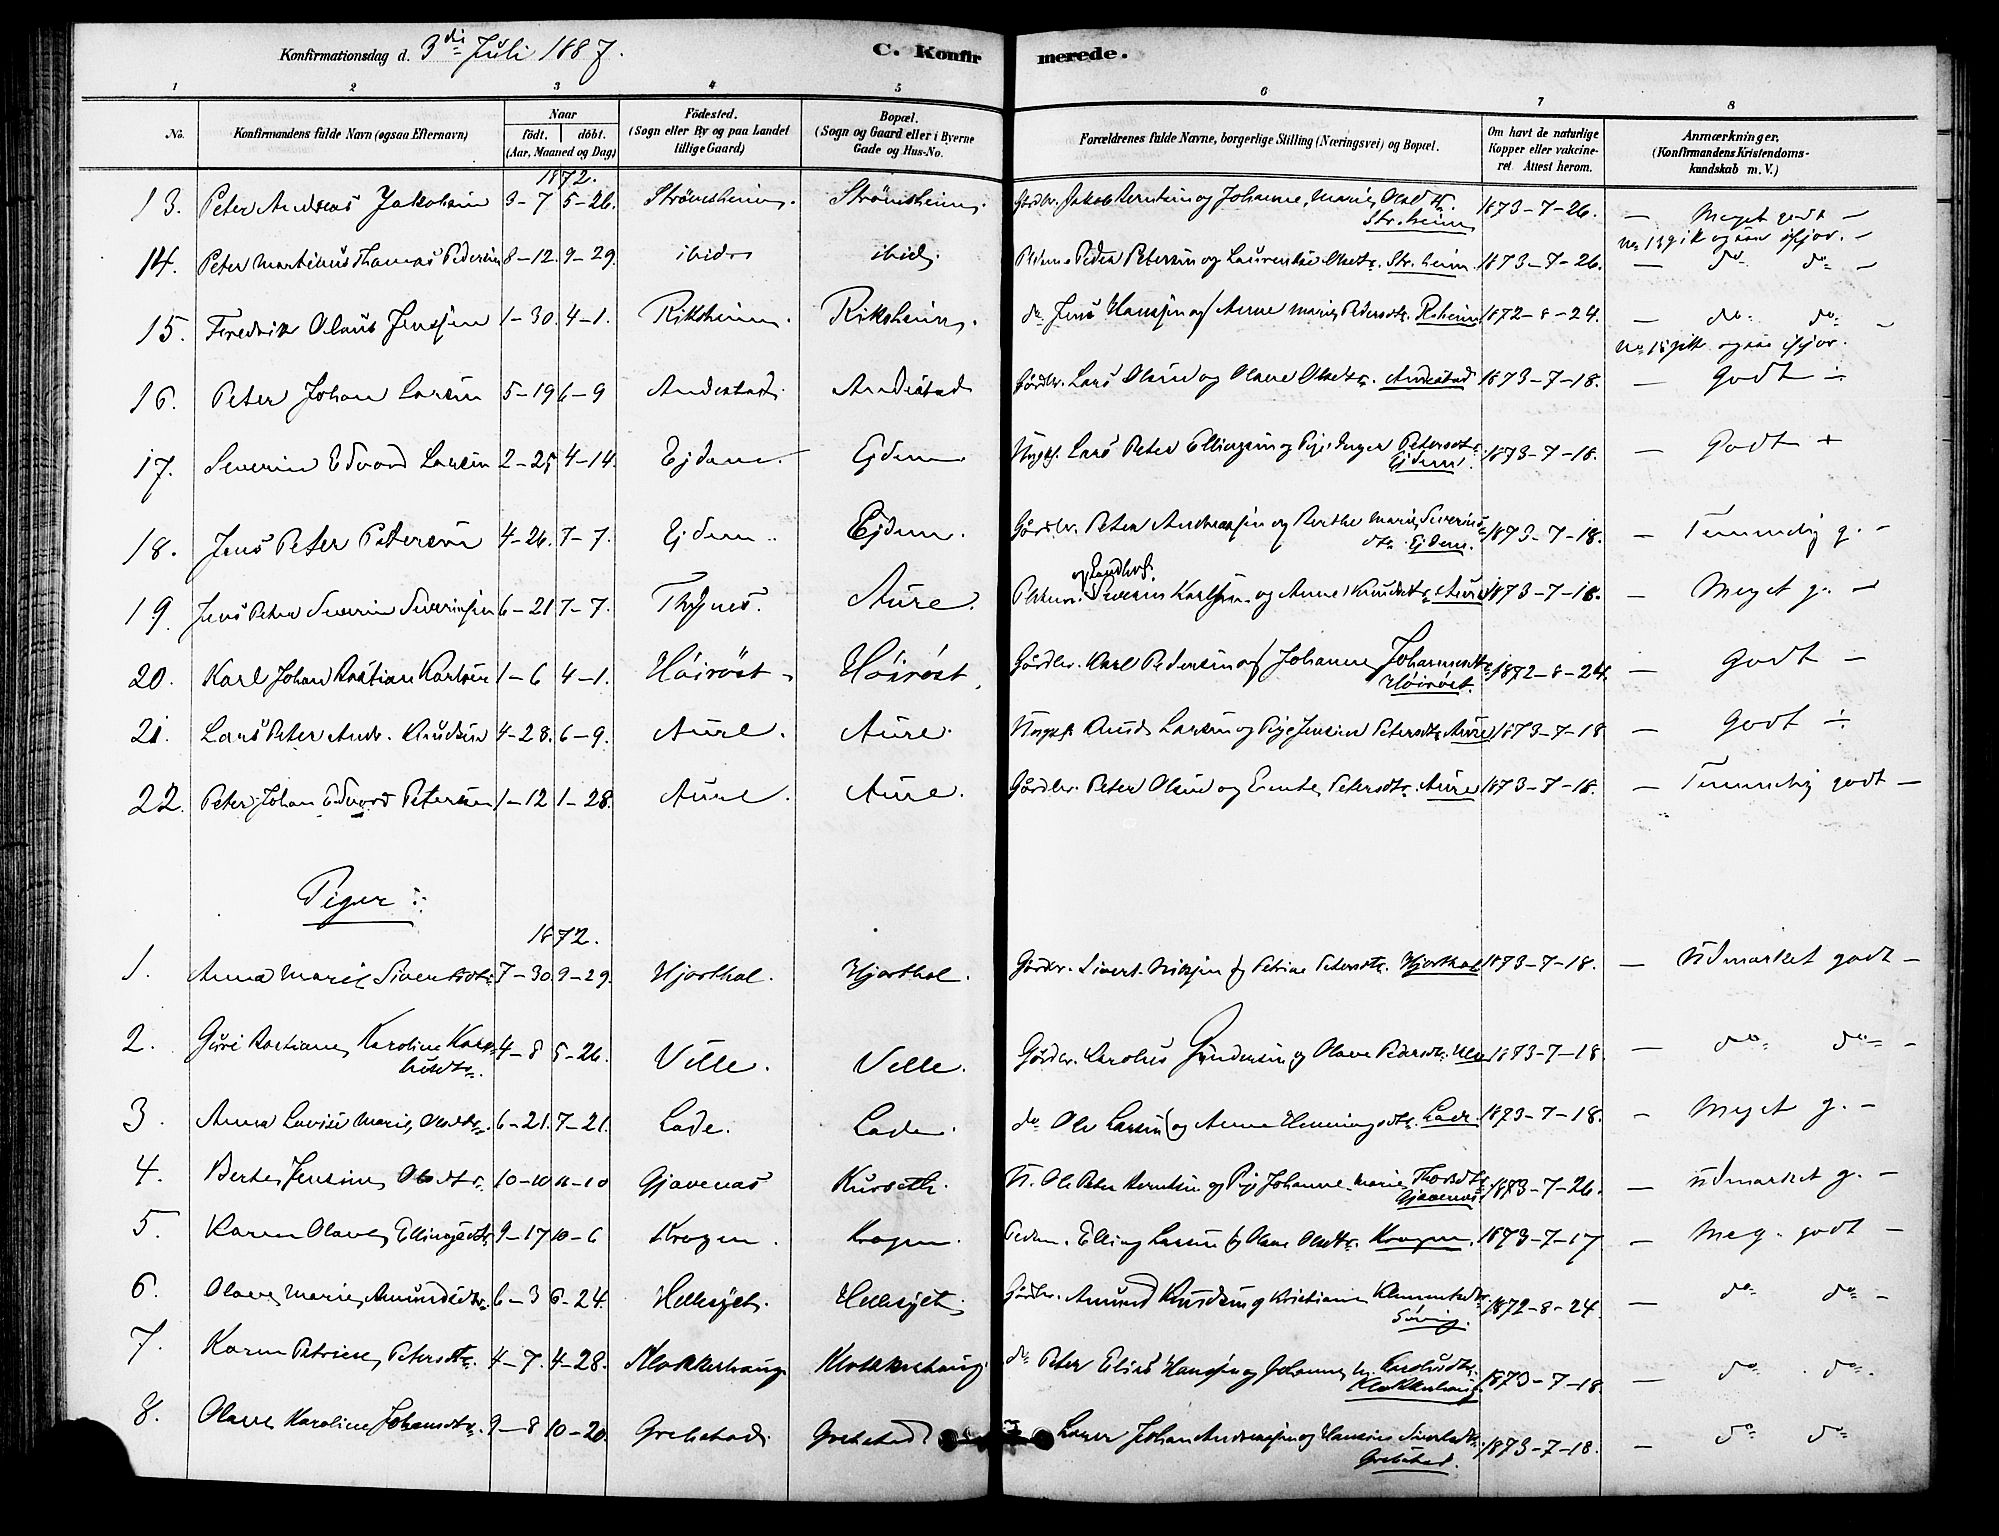 Konfirmationsdag d. 3die Juli 1887.
C. Konfirmerede.
1 2 3 4 5 6 7 8
No. Konfirmandens fulde Navn (ogsaa Efternavn) Naar födt. döbt. (Aar, Maaned og Dag) Födested. (Sogn eller By og paa Landet tillige Gaard) Bopæl. (Sogn og Gaard eller i Byerne Gade og Hus-No. Forældrenes fulde Navne, borgerlige Stilling (Næringsvei) og Bopæl. Om havt de naturlige Kopper eller vakcineret. Attest herom. Anmærkninger. (Konfirmandens Kristendomskundskab m. V.)
1872.
13. Peter Andreas Jakobsen 3-7 5-26. Strömsheim. Strömsheim. Gårdbr. Jakob Berntsen og Johanne Marie Olsdtr. Str.heim 1873-7-26. — Meget godt —
No 13 gik ogsaa ifjor. —
14. Peter Martinus Thomas Pedersen 8-12. 9-29. ibid. ibid. Peder Petersen og Laurentse Olsdtr. Str.heim. 1873-7-26. — do do —
15. Fredrik Olaus Jenssen 1-30. 4-1. Riksheim. Riksheim. do Jens Hanssen og Anne Marie Pedersdtr. R.heim 1872-8-24. — do do —
No 15 gik ogsaa ifjor.
16. Peter Johan Larsen 5-19 6-9 Andestad. Andestad Gårdbr. Lars Olsen og Olave Olsdtr. Andestad 1873-7-18. — Godt ÷
17. Severin Edvard Larsen 2-25 4-14. Ejdem. Ejdem Ungk. Lars Peter Ellingsen og Pige Inger Petersdtr. Ejdem. 1873-7-18. — Godt +
18. Jens Peter Petersen 4-26. 7-7. Ejdem. Ejdem. Gårdbr. Peter Andreassen og Berthe Marie Severinsdtr. Ejdem. 1873-7-18. — Temmelig g. —
19. Jens Peter Severin Severinsen 6-21 7-7. Thynes. Aure. Severin Karlsen og Anne Knudsdtr. Aure 1873-7-18. — Meget g. —
20. Karl Johan Kristian Karlsen 1-6 4-1. Höiröst. Höiröst. Gårdbr. Karl Pedersen og Johanne Johannesdtr. Höiröst. 1872-8-24. — Godt —
21. Lars Peter Andr. Knudsen 4-28. 6-9. Aure. Aure. Ungk. Knud Larsen og Pige Jensine Petersdtr. Aure 1873-7-18 — Godt ÷
22. Peter Johan Edvard Petersen 1-12 1-28. Aure. Aure. Gårdbr. Peter Olsen og Petersdtr. Aure 1873-7-18. — Temmelig godt —
Piger:
1872.
1. Anna Marie Sivertsdtr. 7-30. 9-29. Hjorthol. Hjorthol. Gårdbr. Sivert og Petrine Petersdtr. Hjorthol 1873-7-18. — Udmærket godt —
2. Guri Kristiane Karoline Karolusdtr. 4-8 5-26. Velle. Velle. Gårdbr. Karolus Gundersen og Olave Pedersdtr. Velle 1873-7-18. — do do —
3. Anna Lovise Marie Olsdtr. 6-21. 7-21. Lade. Lade. do Ole Larsen og Anne Henningsdtr. Lade. 1873-7-18. — Meget g. —
4. Berte Jensine Olsdtr. 10-10 11-10 Gjævenæs Kurseth. U. Ole Peter Berntsen og Pige Johanne Marie Gjævenæs 1873-7-26. — Udmærket g. —
5. Karen Olave Ellingsdtr. 9-17 10-6 Krogen. Krogen. Elling Larsen og Olave Olsdtr. Krogen. 1873-7-17 — Meg. godt —
6. Olave Marie Amundsdtr. 6-3 6-24. Hellesyet. Hellesyet. Gårdbr. Amund Knudsen og Kristiane Klemmetsdtr. 1872-8-24 — do do —
7. Karen Petrine Petersdtr. 4-7. 4-28. Klokkerhaug Klokkerhaug. do Peter Elias Hanssen og Johanne Karolusdtr. Klokkerhaug. 1873-7-18. — do do
8. Olave Karoline Johansdtr. 9-8 10-20. Grebstad. Grebstad Johan Andreassen og Hansine Sivertsdtr. Grebstad. 1873-7-18. — do do